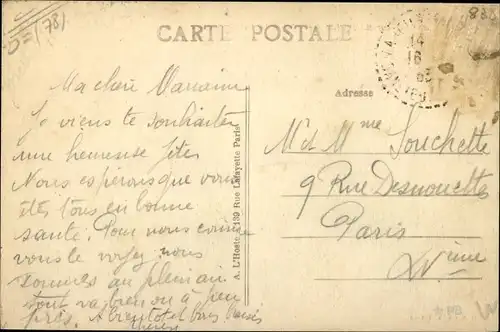 D=(78)
CARTE POSTALE
14
16
Adresse
Ma cheri Marraine
Je viens te souhaiter
une heureuse fête
Nous espérons que vous
êtes tous en bonne
santé. Pour nous comme
vous le voyez nous
sommes au plein air
tout va bien ou à peu
près. A bientôt et bons baisers
A. L'Hoste, 139 Rue Lafayette Paris
M et Mme Souchette
9 Rue Desnouettes
Paris
XVème